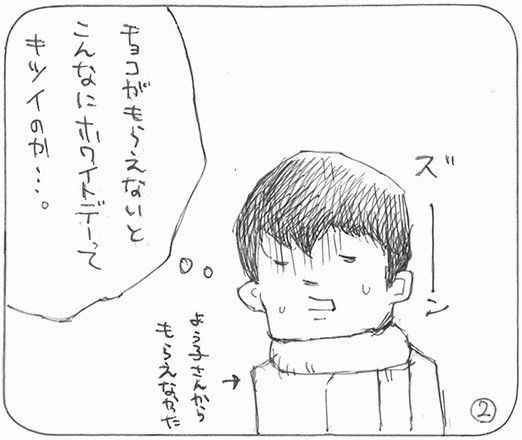 チョコがもらえないと
こんなにホワイトデーって
キツイのか…。
ズーン
ようこさんから
もらえなかった
→
②